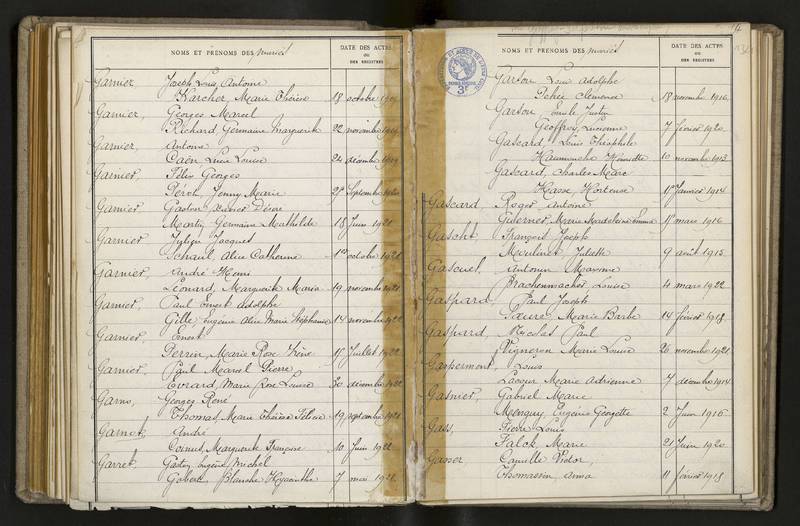 NOMS ET PRÉNOMS DES mariés
DATE DES ACTES
OU
DES REGISTRES
Garnier, Joseph Louis Antoine
Karcher, Marie Thérèse 18 octobre 1919
Garnier, Georges Marcel
Richard, Germaine Marguerite 22 novembre 1919
Garnier, Antoine
Caën Lucie Louise 24 décembre 1919
Garnier Félix Georges
Pérot Jenny Marie Septembre 1920
Garnier Gaston Xavier Désiré
Martin Germaine Mathilde 18 Juin 1921
Garnier Julien Jacques
Schaul, Alice Catherine 1er octobre 1921
Garnier, André Henri
Léonard, Marguerite Maria 19 novembre 1921
Garnier, Paul Ernest Adolphe
Gille Eugénie Alice Marie Stéphanie 14 novembre 1922
Garnier, Ernest
Perrin, Marie Rose Irène 17 Juillet 1922
Garnier, Paul Marcel Pierre
Evrard, Marie Rose Louise 30 décembre 1922
Garno, Georges René
Thomas, Marie Thérèse Félicie 19 septembre 1921
Garnot, André
Cornet, Marguerite Françoise 10 Juin 1922
Garret, Gaston Eugène Michel
Gobert, Blanche Hyacinthe 7 mai 1921
14
NOMS ET PRÉNOMS DES mariés
DATE DES ACTES
OU
DES REGISTRES
Garson Louis Adolphe
Clémence 18 novembre 1916
Garson Emile Justin
Geoffroy, Lucienne 7 février 1920
Gascard, Louis Théophile
Henriette 10 novembre 1913
Gascard, Charles Marc
Hasse Hortense Janvier 1914
Gascard Roger Antoine
Marie Madeleine Emma mars 1916
Gascht François Joseph
Moulinet Juliette 9 août 1915
Gascuel, Antonin Maxime
Brachenmacher, Louise 4 mars 1922
Gaspard, Paul Joseph
Faivre, Marie Barbe 14 février 1918
Gaspard, Nicolas Paul
Vigneron Marie Louise 26 novembre 1921
Gasperment, Louis
Lacour Marie Adrienne 7 décembre 1914
Gasnier, Gabriel Marie
Menguy Eugénie Georgette 2 Juin 1916
Gass, Pierre Louis
Falck Marie 21 Juin 1920
Gasser Camille Victor,
Thomassin, Anna 11 février 1918